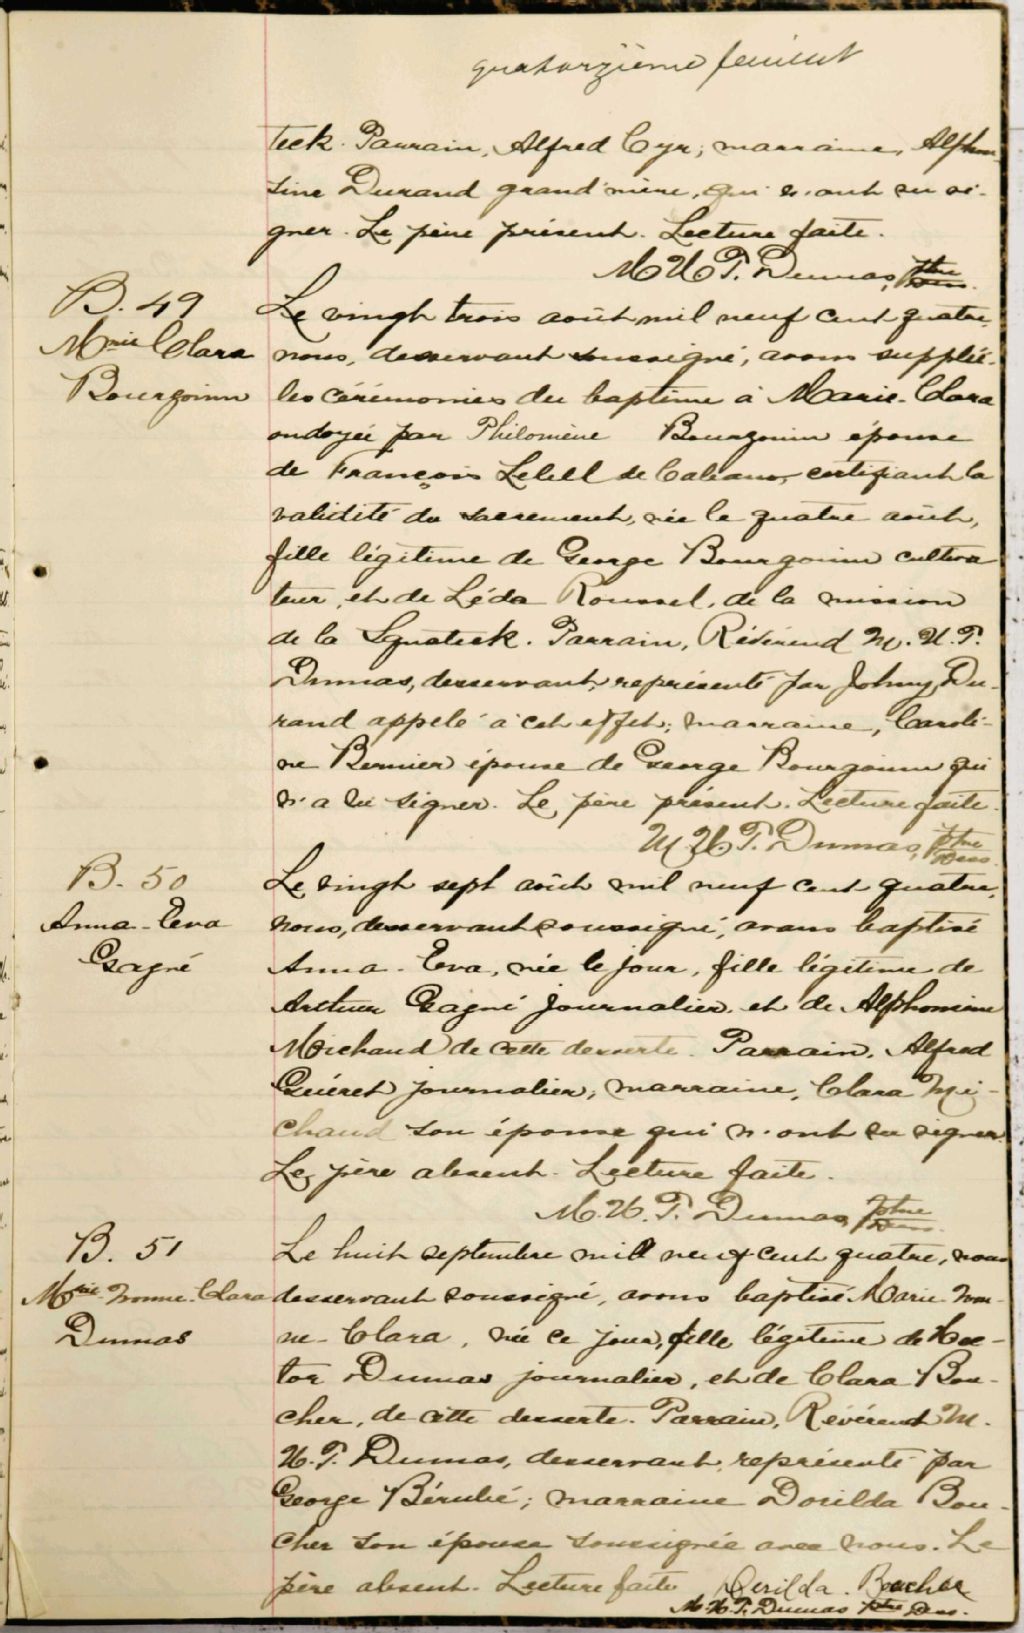 quatorzième feuillet
teck. Parrain, Alfred Cyr; marraine, Alphon-
sine Durand grand'mère, qui n'ont su si-
gner. Le père présent. Lecture faite.
M U T. Dumas, ptre Dess.
B. 49
Mrie Clara
Bourgoinn
Le vingt trois août mil neuf cent quatre,
nous, desservant soussigné, avons supplée
les cérémonies du baptême à Marie-Clara
ondoyée par Philomène Bourgouin épouse
de François Lebell de Cabano, certifiant la
validité du sacrement, née le quatre août,
fille légitime de George Bourgouin cultiva
teur, et de Léda Roussel, de la mission
de la Squateck. Parrain, Révérend M. U. T.
Dumas, desservant, représenté par Johny Du-
rand appelé à cet effet; marraine, Caroli-
ne Bernier épouse de George Bourgouin qui
n'a su signer. Le père présent. Lecture faite.
M U T. Dumas, ptre Dess.
B. 50
Anna-Eva
Gagné
Le vingt sept août mil neuf cent quatre,
nous, desservant soussigné, avons baptisé
Anna-Eva, née le jour, fille légitime de
Arthur Gagné journalier, et de Alphonsine
Michaud de cette desserte. Parrain, Alfred
Guéret journalier; marraine, Clara Mi-
chaud son épouse qui n'ont su signer.
Le père absent. Lecture faite.
M. U. T. Dumas, ptre Dess.
B. 51
Mrie-Ivonne-Clara
Dumas
Le huit septembre mill neuf cent quatre, nous
desservant soussigné, avons baptisé Marie-Ivon-
ne-Clara, née ce jour, fille légitime de Hec-
tor Dumas journalier, et de Clara Bou-
cher, de cette desserte. Parrain, Révérend M.
U. T. Dumas, desservant, représenté par
George Bérubé; marraine Dorilda Bou-
cher son épouse soussignée avec nous. Le
père absent. Lecture faite Derilda. Boucher
M. U. T. Dumas ptre Dess.